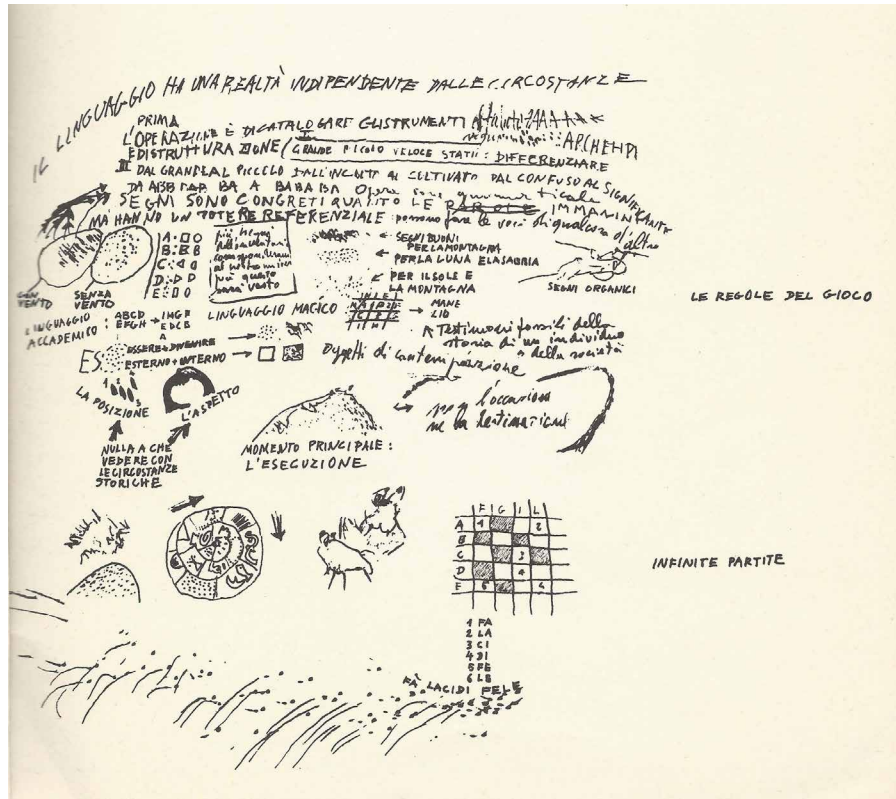 IL LINGUAGGIO HA UNA REALTÀ INDIPENDENTE DALLE CIRCOSTANZE
PRIMA
L'OPERAZIONE È DI CATALOGARE GLI STRUMENTI
E DISTRUTTURAZIONE (GRANDE PICCOLO VELOCE STATI: DIFFERENZIARE
III DAL GRANDE AL PICCOLO DALL'INCOLTO AL COLTIVATO DAL CONFUSO AL SIGNIFICANTE
DA ABB BA A BABABA
SEGNI SONO CONCRETI QUANTO LE PAROLE IMMANIN
MA HANNO UN POTERE REFERENZIALE possono fare le veci di qualcosa d'altro
CON VENTO
SENZA VENTO
A:
B:
C:
D:
E:
più segni
SEGNI BUONI
PER LA MONTAGNA
PER LA LUNA E LA SABBIA
PER IL SOLE E
LA MONTAGNA
SEGNI ORGANICI
LE REGOLE DEL GIOCO
LINGUAGGIO
ACCADEMICO:
ABCD
EFGH
LINGUAGGIO MAGICO
MANE
LIO
Testimoni fossili della
storia di un individuo
o della società
ES
ESSERE + DIVENIRE
ESTERNO + INTERNO
Oggetti di contemplazione
LA POSIZIONE
L'ASPETTO
l'occasione
NULLA A CHE
VEDERE CON
LE CIRCOSTANZE
STORICHE
MOMENTO PRINCIPALE:
L'ESECUZIONE
F G I L
A 1 2
B
C 3
D 4
E
INFINITE PARTITE
1 FA
2 LA
3 CI
4 DI
5 FE
6 LE
FÀ LACIDI FELE